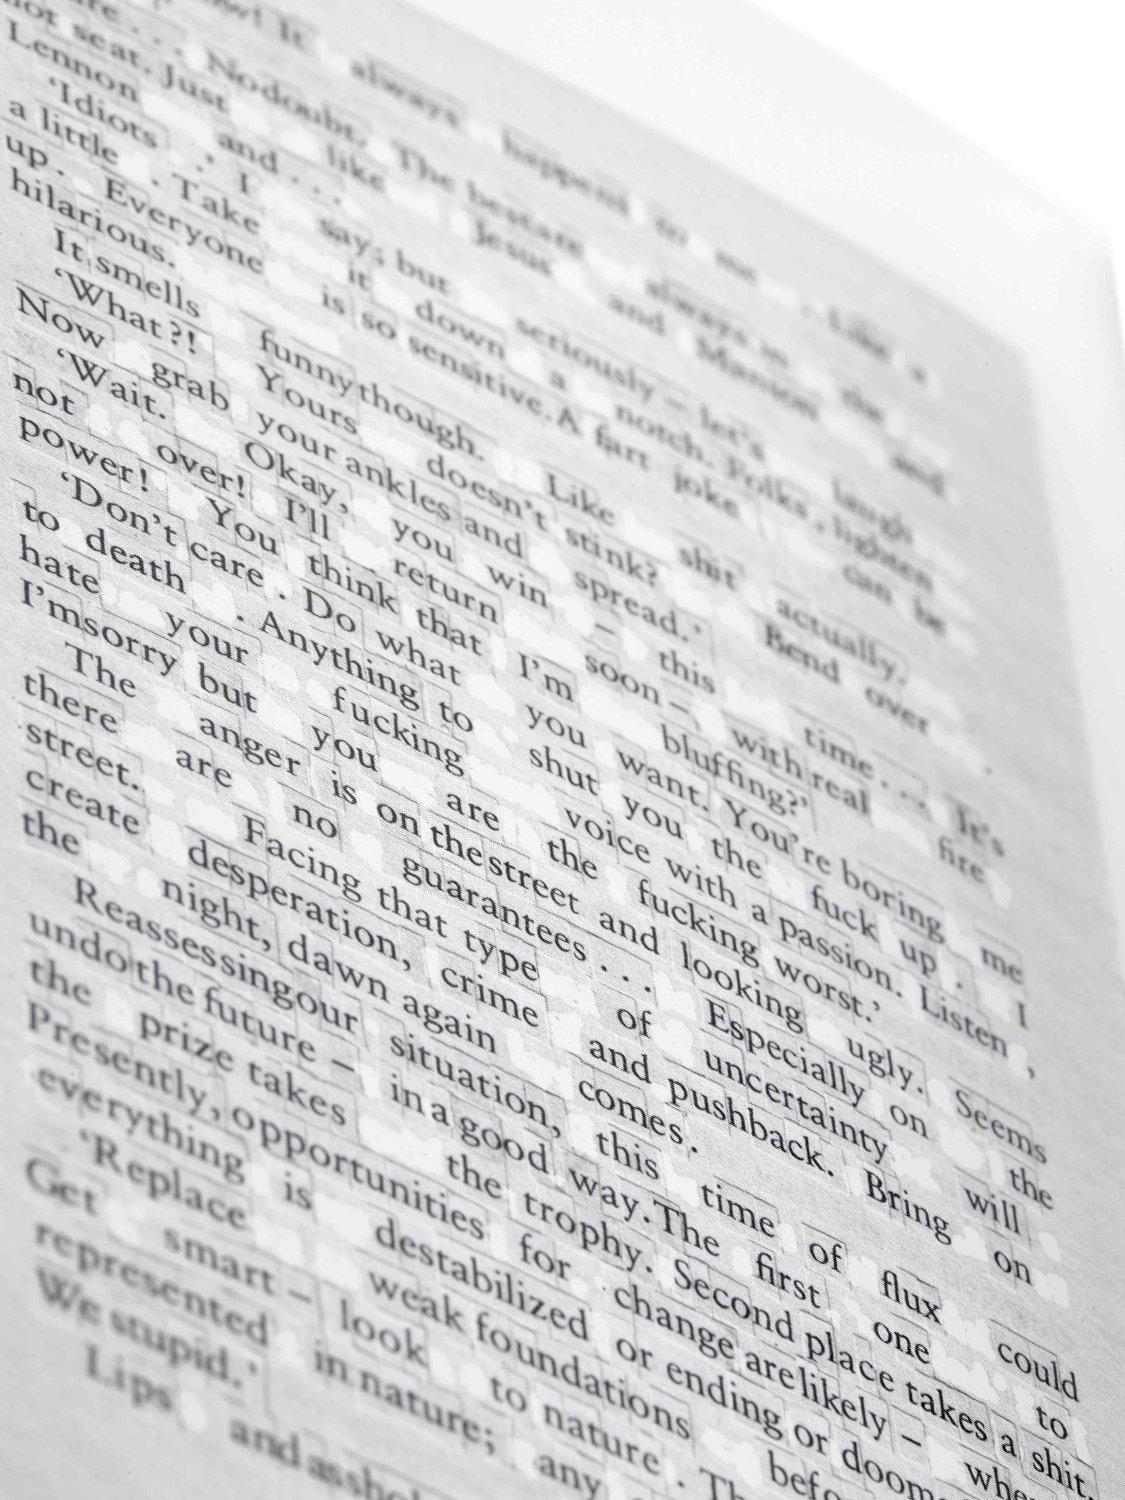 It always happens to me . Like a
. . . No doubt. The best are always in the
hot seat. Just like Jesus and Manson and
Lennon and . . .
‘Idiots .’ I say; but seriously – let’s laugh
a little . Take it down a notch. Folks , lighten
up . Everyone is so sensitive. A fart joke can be
hilarious.
It smells funny though. Like shit actually.
‘What?! Yours doesn’t stink? Bend over .
Now grab your ankles and spread.’
‘Wait. Okay, you win – this time . . . It’s
not over! I’ll return soon – with real fire
power! You think that I’m bluffing?’
‘Don’t care . Do what you want. You’re boring me
to death . Anything to shut you the fuck up . I
hate your fucking voice with a passion. Listen ,
I’m sorry but you are the fucking worst.’
The anger is on the street and looking ugly. Seems
there are no guarantees . . . Especially on the
street. Facing that type of uncertainty will
create desperation, crime and pushback. Bring on
the night, dawn again comes.
Reassessing our situation, this time of flux could
undo the future – in a good way. The first one to
the prize takes the trophy. Second place takes a shit.
Presently, opportunities for change are likely – whe
everything is destabilized or ending or doom
‘Replace weak foundations befo
Get smart – look to nature . Th
represented in nature; any
We stupid.’
Lips, and asshol